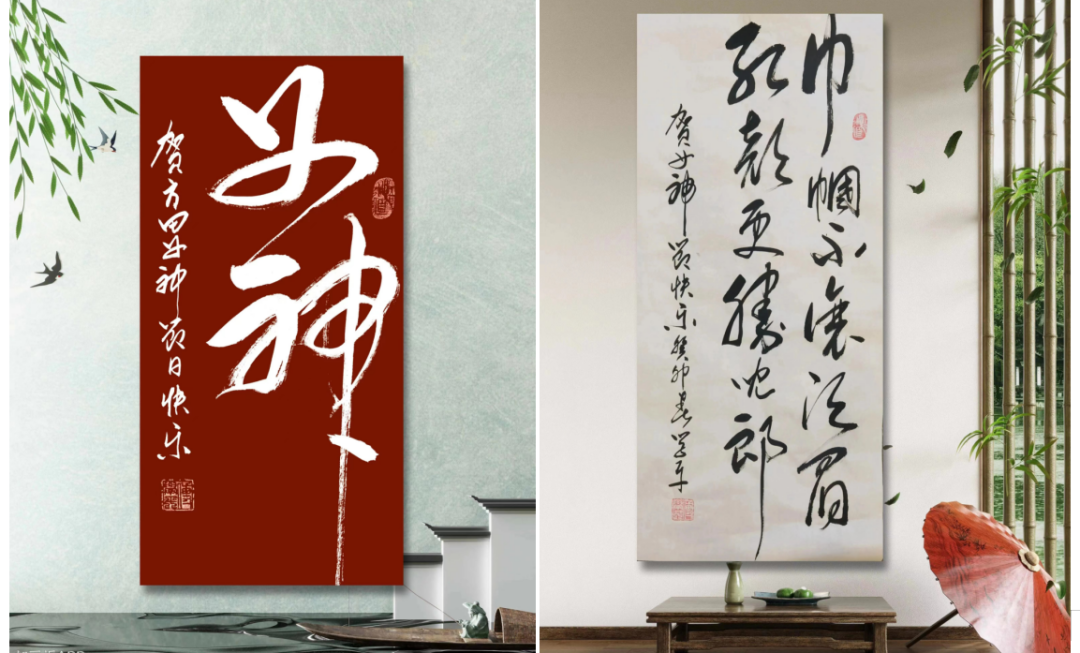 女神
贺方田女神节日快乐
巾帼不讓须眉
红颜更勝兒郎
贺女神节快乐癸卯春